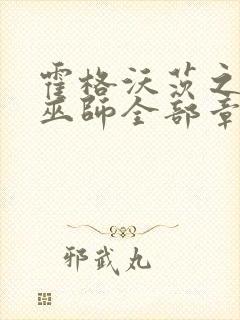 霍格沃茨之
巫師全部章
邪武丸